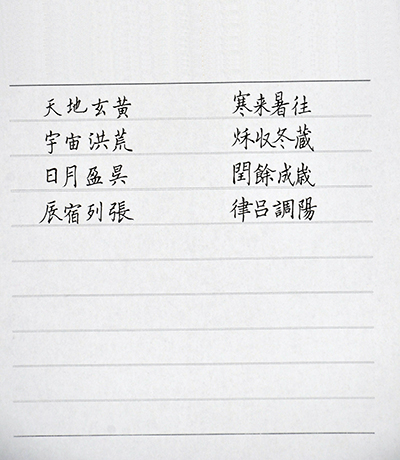 天地玄黄
宇宙洪荒
日月盈昃
辰宿列張
寒来暑往
秋收冬蔵
閏餘成歳
律呂調陽